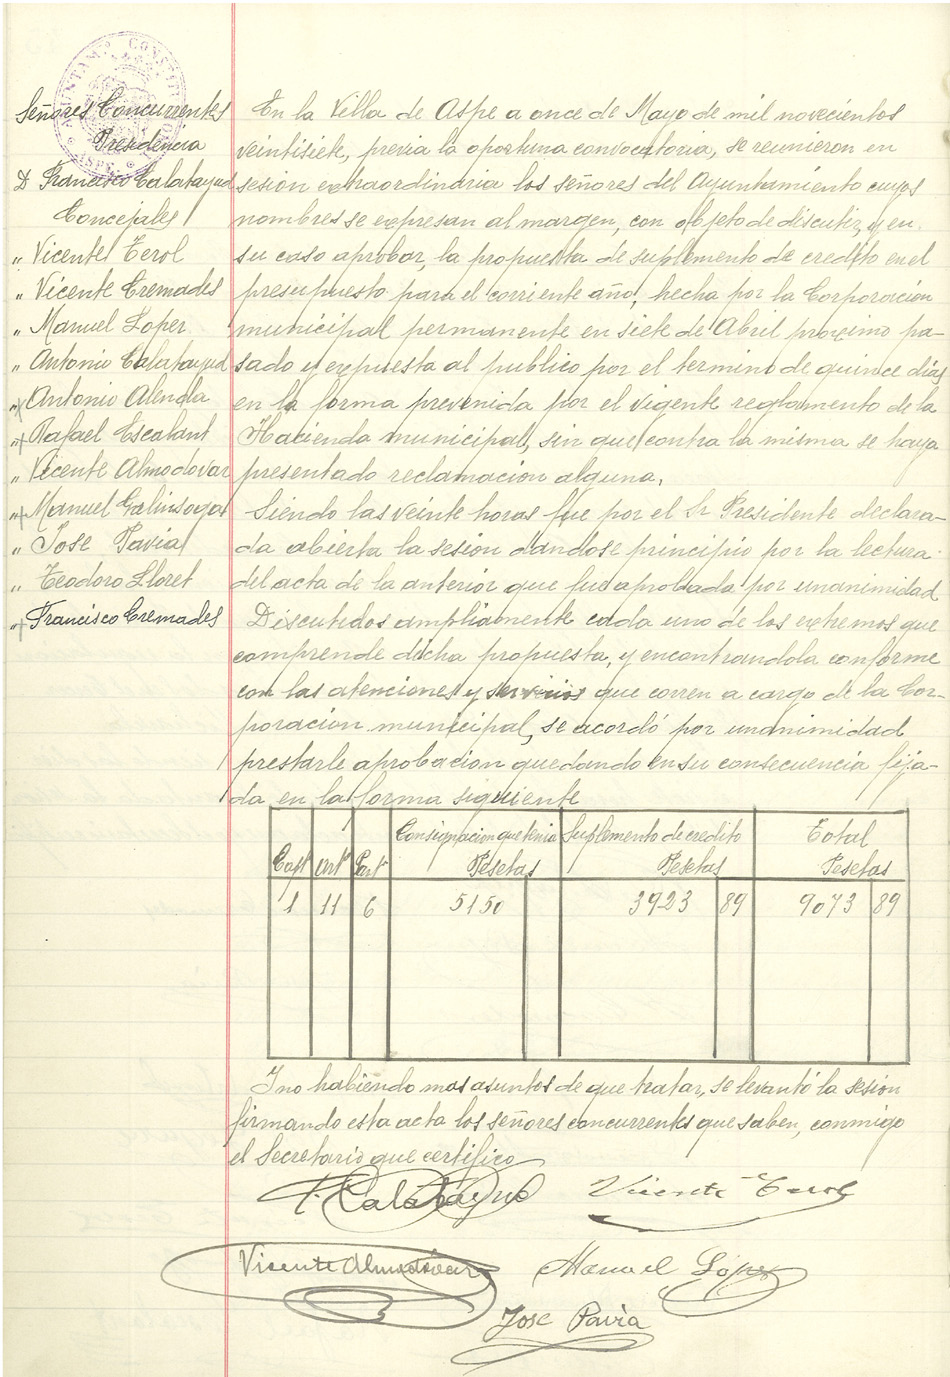 AYUNTAMIENTO CONSTITUCIONAL
ASPE
Señores Concurrentes
Presidencia
D Francisco Calatayud
Concejales
" Vicente Cerol
" Vicente Cremades
" Manuel Lopez
" Antonio Calatayud
" Antonio Alenda
" Rafael Escalant
" Vicente Almodovar
" Manuel Galinsoga
" Jose Pavia
" Teodoro Lloret
" Francisco Cremades
En la Villa de Aspe a once de Mayo de mil novecientos
veintisiete, previa la oportuna convocatoria, se reunieron en
sesión extraordinaria los señores del Ayuntamiento cuyos
nombres se expresan al margen, con objeto de discutir, y en
su caso aprobar, la propuesta de suplemento de credito en el
presupuesto para el corriente año, hecha por la Corporación
municipal permanente en siete de Abril proximo pa-
sado y expuesta al publico por el termino de quince dias
en la forma prevenida por el vigente reglamento de la
Hacienda municipal, sin que contra la misma se haya
presentado reclamacion alguna.
Siendo las veinte horas fue por el Sr Presidente declara-
da abierta la sesión dandose principio por la lectura
del acta de la anterior que fue aprobada por unanimidad
Discutidos ampliamente cada uno de los extremos que
comprende dicha propuesta, y encontrandola conforme
con las atenciones y servicios que corren a cargo de la Cor-
poracion municipal, se acordó por unanimidad
prestarle aprobacion quedando en su consecuencia fija-
da en la forma siguiente
Capº Artº Partª Consignacion que tenia Pesetas Suplemento de credito Pesetas Total Pesetas
1 11 6 5150 3923 89 9073 89
I no habiendo mas asuntos de que tratar, se levantó la sesión
firmando esta acta los señores concurrentes que saben, conmigo
el Secretario que certifico
F. Calatayud Vicente Cerol
Vicente Almodóvar Manuel López
Jose Pavia